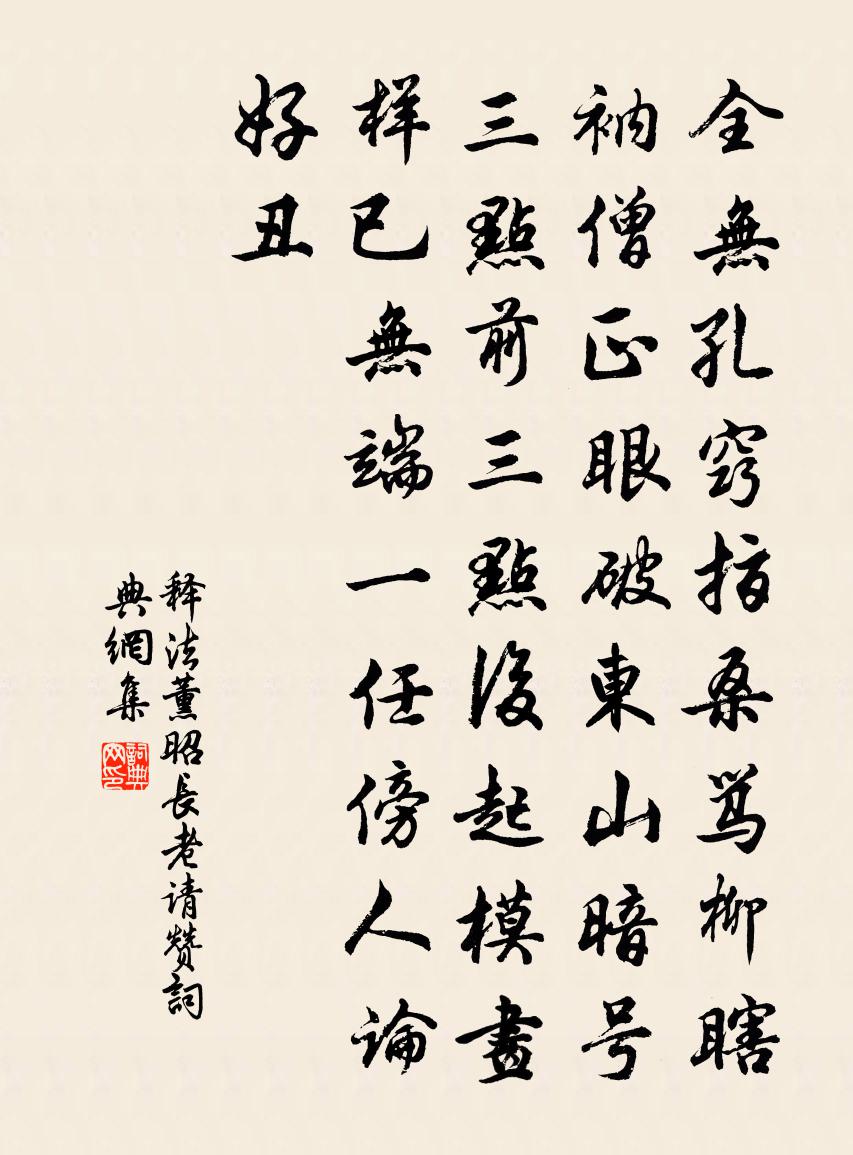 全無孔窍指桑骂柳瞎
衲僧正眼破東山暗号
三點前三點後起模畫
样已無端一任傍人論
好丑
释法薰昭長老请赞詞
典網集
詞典网印